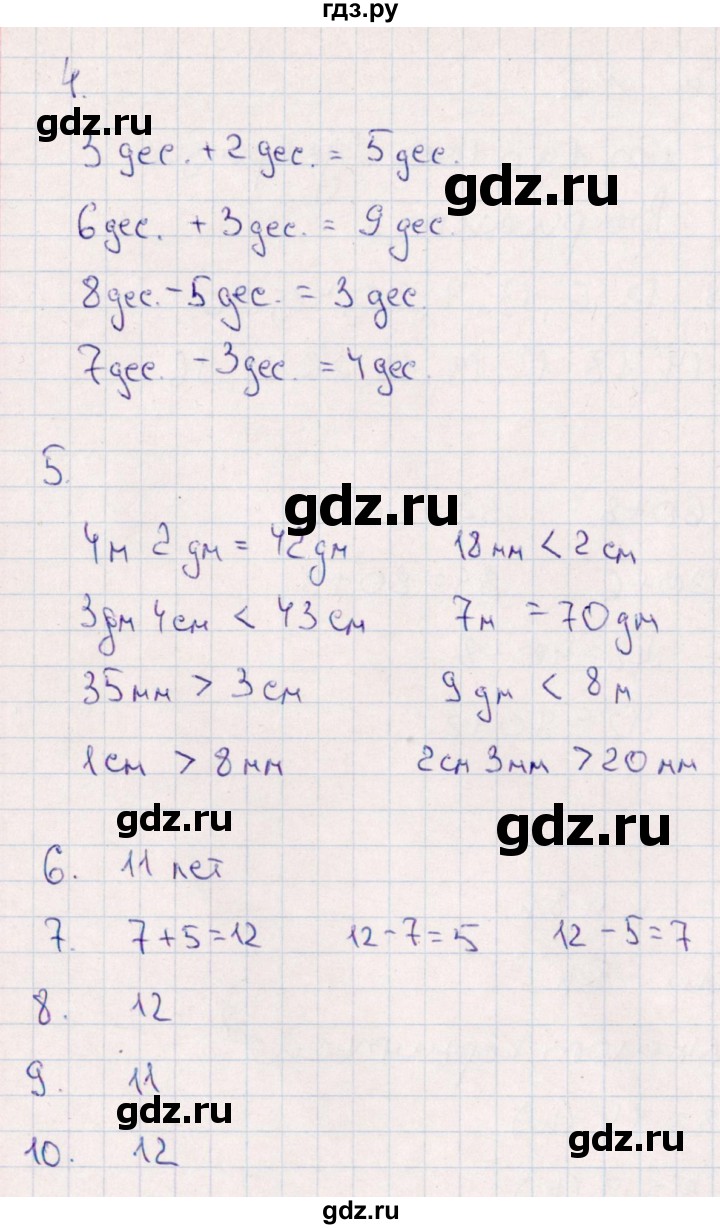 гдз.ру
4.
gdz.ru
3 дес. + 2 дес. = 5 дес.
gdz.ru
6 дес. + 3 дес. = 9 дес.
8 дес. - 5 дес. = 3 дес.
7 дес. - 3 дес. = 4 дес.
5.
gdz.ru
4 м 2 дм = 42 дм 18 мм < 2 см
3 дм 4 см < 43 см 7 м = 70 дм
35 мм > 3 см 9 дм < 8 м
1 см > 8 мм 2 см 3 мм > 20 мм
gdz.ru gdz.ru
6. 11 лет
7. 7 + 5 = 12 12 - 7 = 5 12 - 5 = 7
8. 12
9. 11
gdz.ru gdz.ru
10. 12
gdz.ru